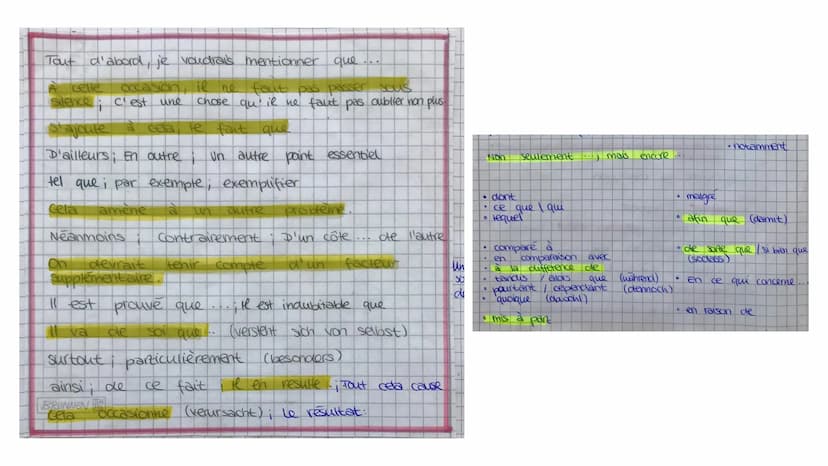 Tout d'abord, je voudrais mentionner que ...
À cette occasion, il ne faut pas passer sous
silence ; c'est une chose qu'il ne faut pas oublier non plus
S'ajoute à cela, le fait que
D'ailleurs ; En outre ; Un autre point essentiel
tel que ; par exemple ; exemplifier
Cela amène à un autre problème.
Néanmoins ; contrairement ; D'un côte ... de l'autre
On devrait tenir compte d'un facteur
supplémentaire.
Il est prouvé que ... ; Il est indubitable que
Il va de soi que ... (versteht sich von selbst)
surtout ; particulièrement (besonders)
ainsi ; de ce fait ; il en resulte ; Tout cela cause
BRUNNEN
Cela occasionne (verursacht) ; le résultat:
Non seulement ..., mais encore
• notamment
• dont
• ce que / qui
• lequel
• comparé à
• en comparaison avec
• à la différence de
• tandis / alors que (während)
• pourtant / cependant (dennoch)
• quoique (obwohl)
• mis à part
• malgré
• afin que (damit)
• de sorte que / si bien que
(sodass)
• en ce qui concerne...
• en raison de